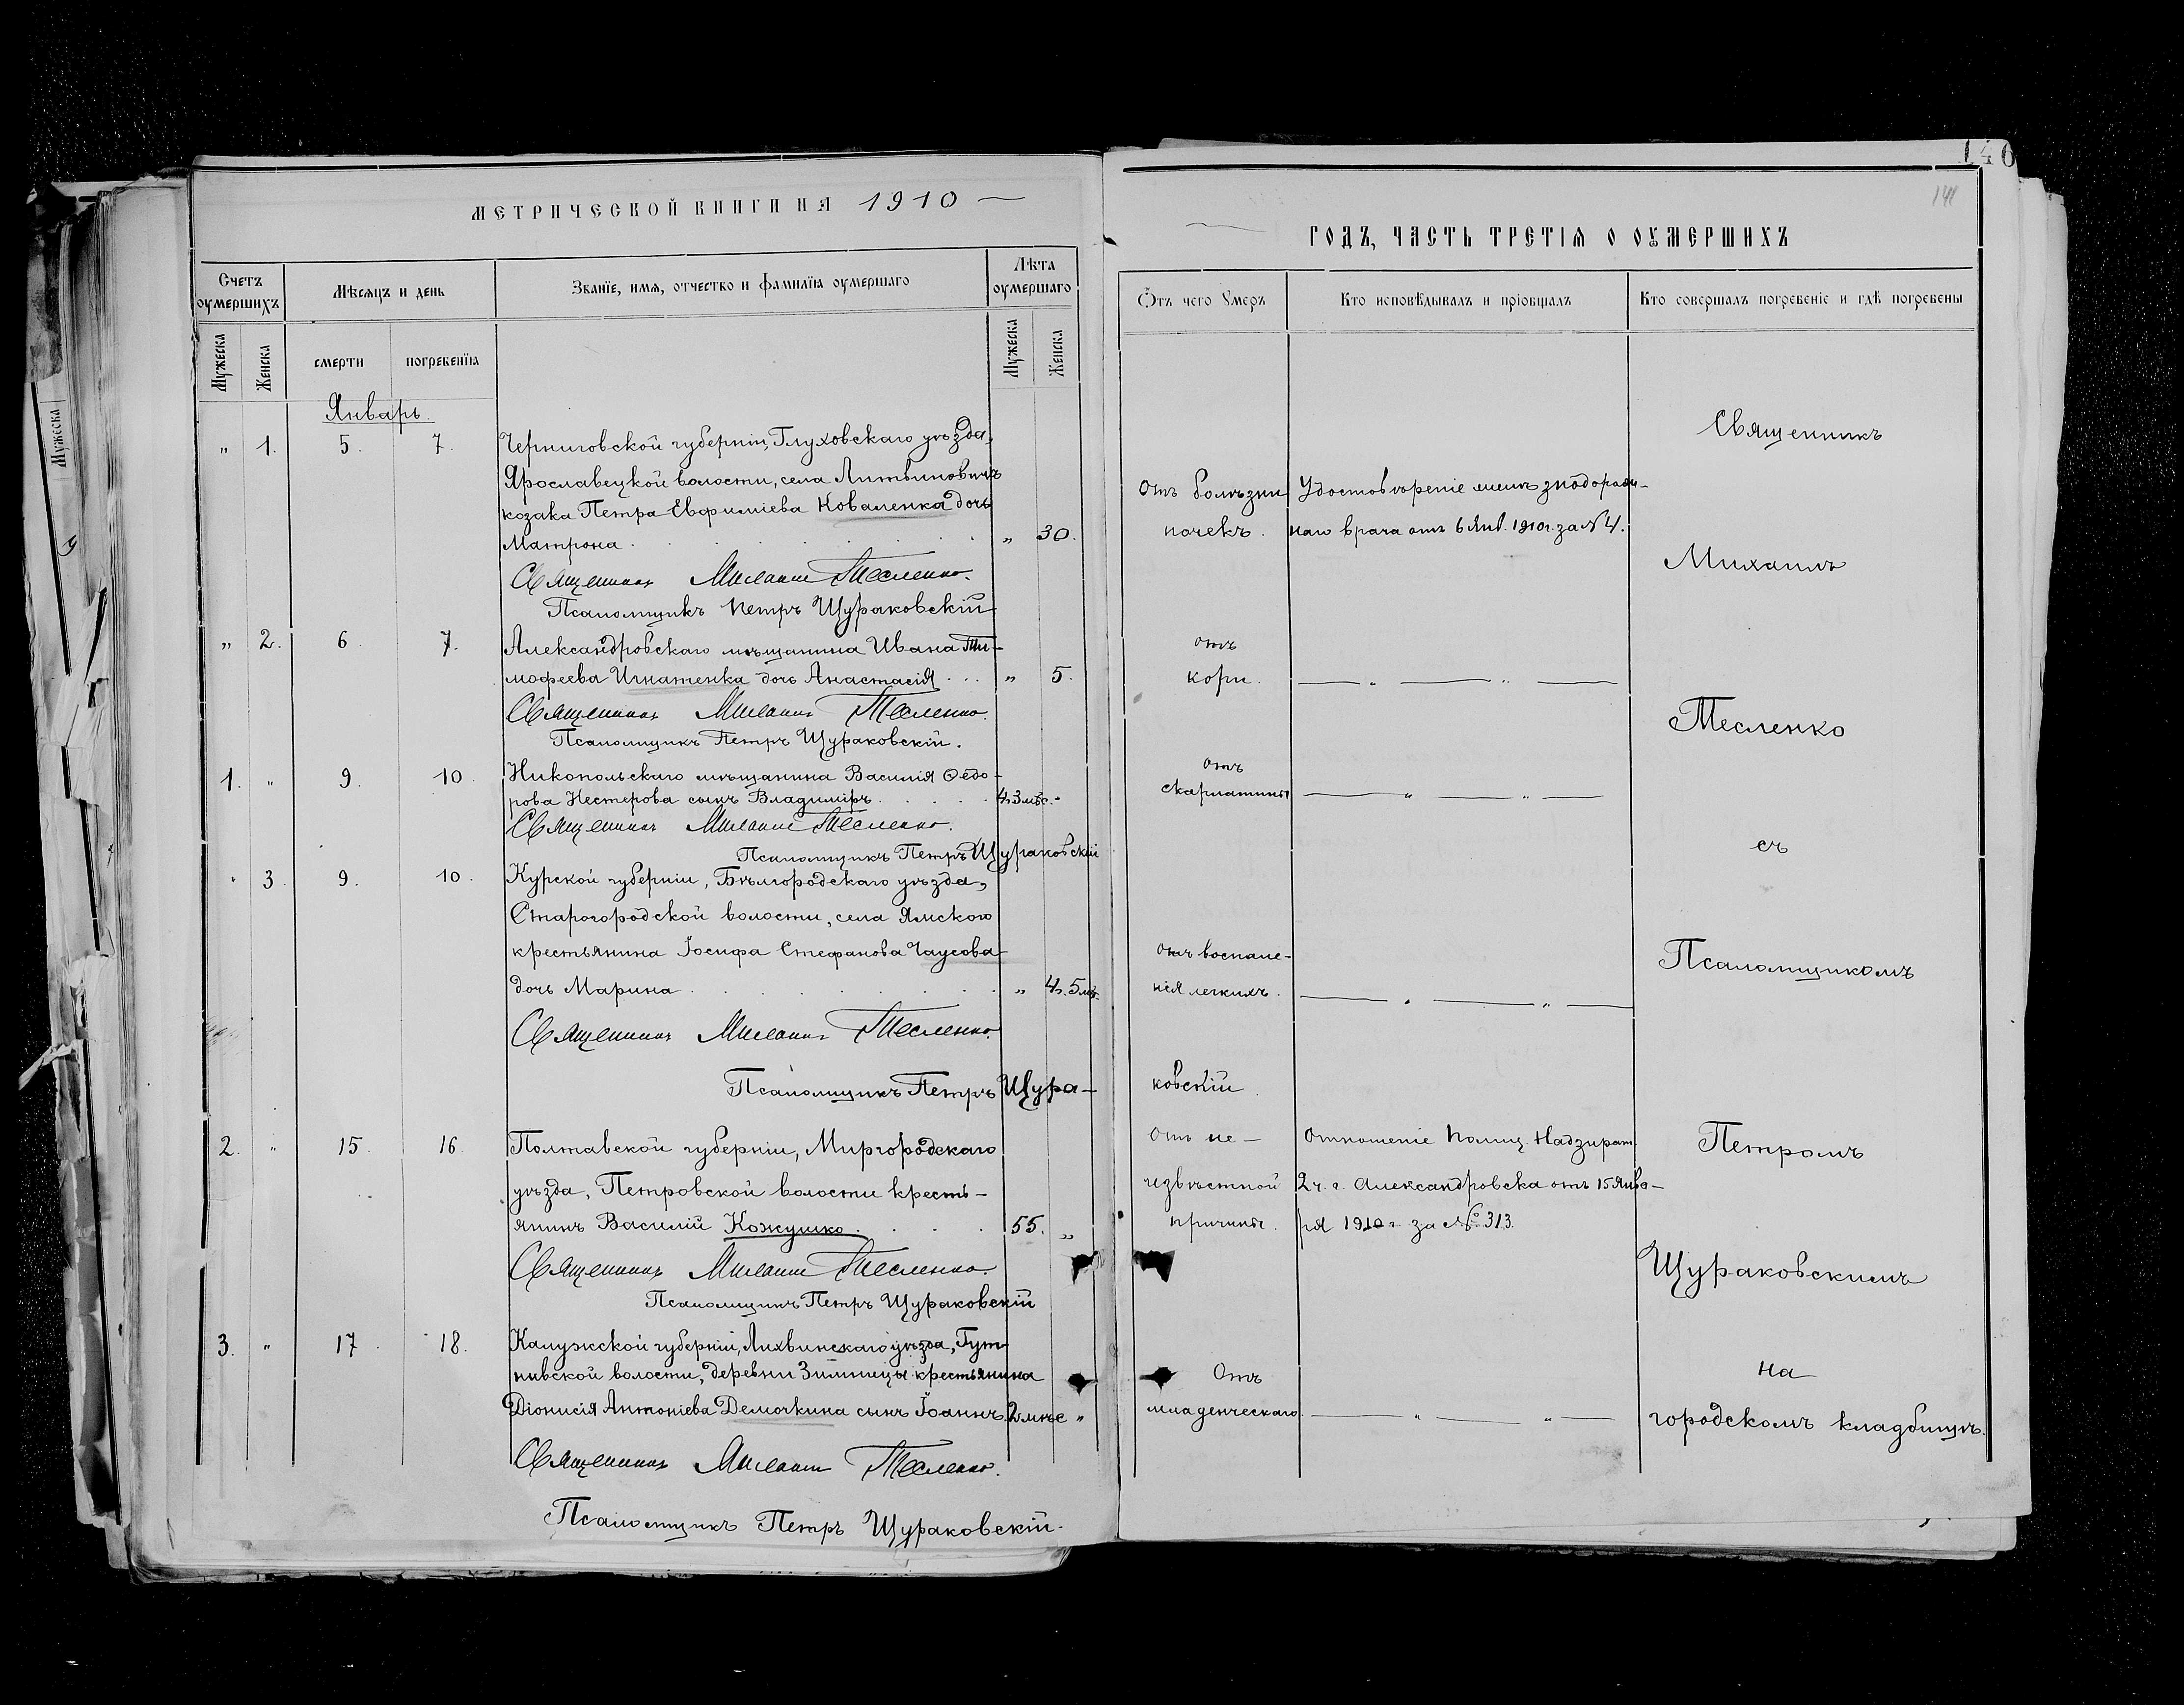 МЕТРИЧЕСКОЙ КНИГИ НА 1910
Счетъ оумершихъ
Мѣсяцъ и день
Званїе, имя, отчество и фамилїа оумершаго
Лѣта оумершаго
Мужеска
Женска
смерти
погребенїа
Мужеска
Женска
Январь.
„ 1. 5. 7. Черниговской губерніи, Глуховскаго уѣзда,
Ярославецкой волости, села Литвиновичъ
козака Петра Евфиміева Коваленка дочь
Матрона . . . „ 30.
Священникъ Михаилъ Тесленко.
Псаломщикъ Петръ Щураковскій
„ 2. 6. 7. Александровскаго мѣщанина Ивана Ти-
мофеева Игнатенка дочь Анастасія . . . „ 5.
Священникъ Михаилъ Тесленко.
Псаломщикъ Петръ Щураковскій.
1. „ 9. 10. Никопольскаго мѣщанина Василія Ѳедо-
рова Нестерова сынъ Владиміръ . . . 4г. 3 мѣс. „
Священникъ Михаилъ Тесленко.
Псаломщикъ Петръ Щураковскій
„ 3. 9. 10. Курской губерніи, Бѣлгородскаго уѣзда,
Старогородской волости, села Ямского
крестьянина Іосифа Стефанова Чаусова
дочь Марина . . . „ 4г. 5 мѣ.
Священникъ Михаилъ Тесленко.
Псаломщикъ Петръ Щура-
2. „ 15. 16. Полтавской губерніи, Миргородскаго
уѣзда, Петровской волости кресть-
янинъ Василій Кожушко . . . 55. „
Священникъ Михаилъ Тесленко.
Псаломщикъ Петръ Щураковскій
3. „ 17. 18. Калужской губерніи, Лихвинскаго уѣзда, Гут-
нивской волости, деревни Зимницы крестьянина
Діонисія Антоніева Демочкина сынъ Іоаннъ. 2 мѣс „
Священникъ Михаилъ Тесленко.
Псаломщикъ Петръ Щураковскій.
140
141
ГОДЪ, ЧАСТЬ ТРЕТІЯ О ОУМЕРШИХЪ
Ѿтъ чего Умеръ
Кто исповѣдывалъ и прїобщалъ
Кто совершалъ погребенїе и гдѣ погребены
Священникъ
Отъ болѣзни Удостовѣреніе
почекъ. наго врача отъ 6 Янв. 1910 г. за № 4.
Михаилъ
отъ
кори. — „ — „ —
Тесленко
отъ
скарлатины — „ — „ —
съ
отъ воспале-
нія легкихъ. — „ — „ —
Псаломщикомъ
ковскій
Отъ не- Отношеніе Полиц. Надзират.
извѣстной 2 ч. г. Александровска отъ 15 Янва-
причины. ря 1910 г. за № 313.
Петромъ
Щураковскимъ
на
Отъ
младенческаго — „ — „ —
городскомъ кладбищѣ.
Мужеска